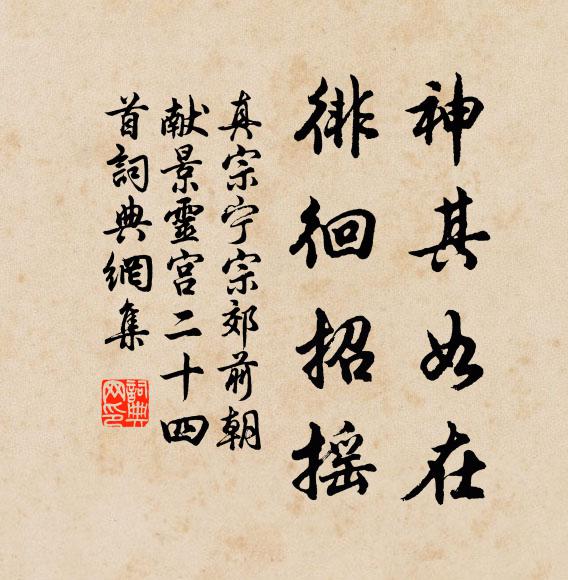 神其如在
徘徊招摇
真宗宁宗郊前朝
献景靈宫二十四
首詞典網集
詞典网印